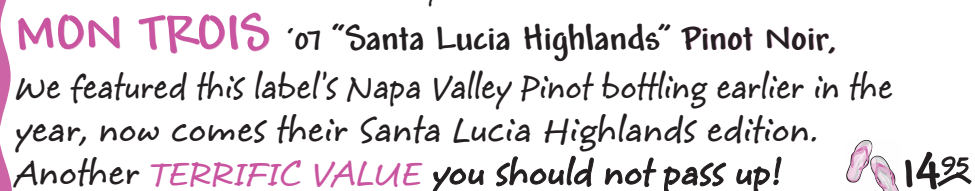 MON TROIS '07 "Santa Lucia Highlands" Pinot Noir,
We featured this label's Napa Valley Pinot bottling earlier in the
year, now comes their Santa Lucia Highlands edition.
Another TERRIFIC VALUE you should not pass up! 14.95